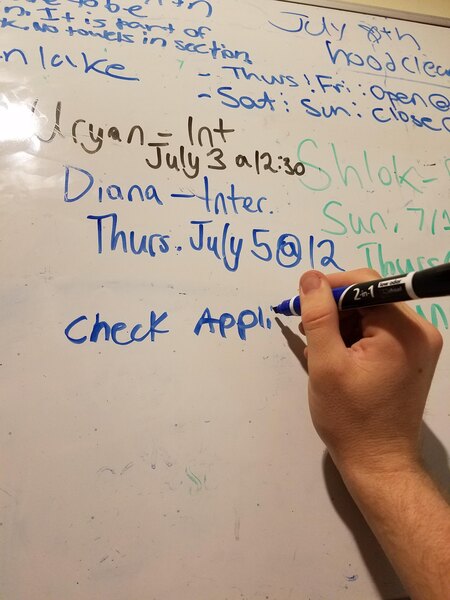 to be
n. It is part of
k. No towels in section
nlake
July 8th
hood clea
- Thurs! Fri: : open@
- Sat: Sun: Close@
Uryan - Int
July 3 a12:30
Diana - Inter.
Thurs. July 5@12
Shlok -
Sun, 7/1
Thurs
Check Appli
2-in-1
low odor